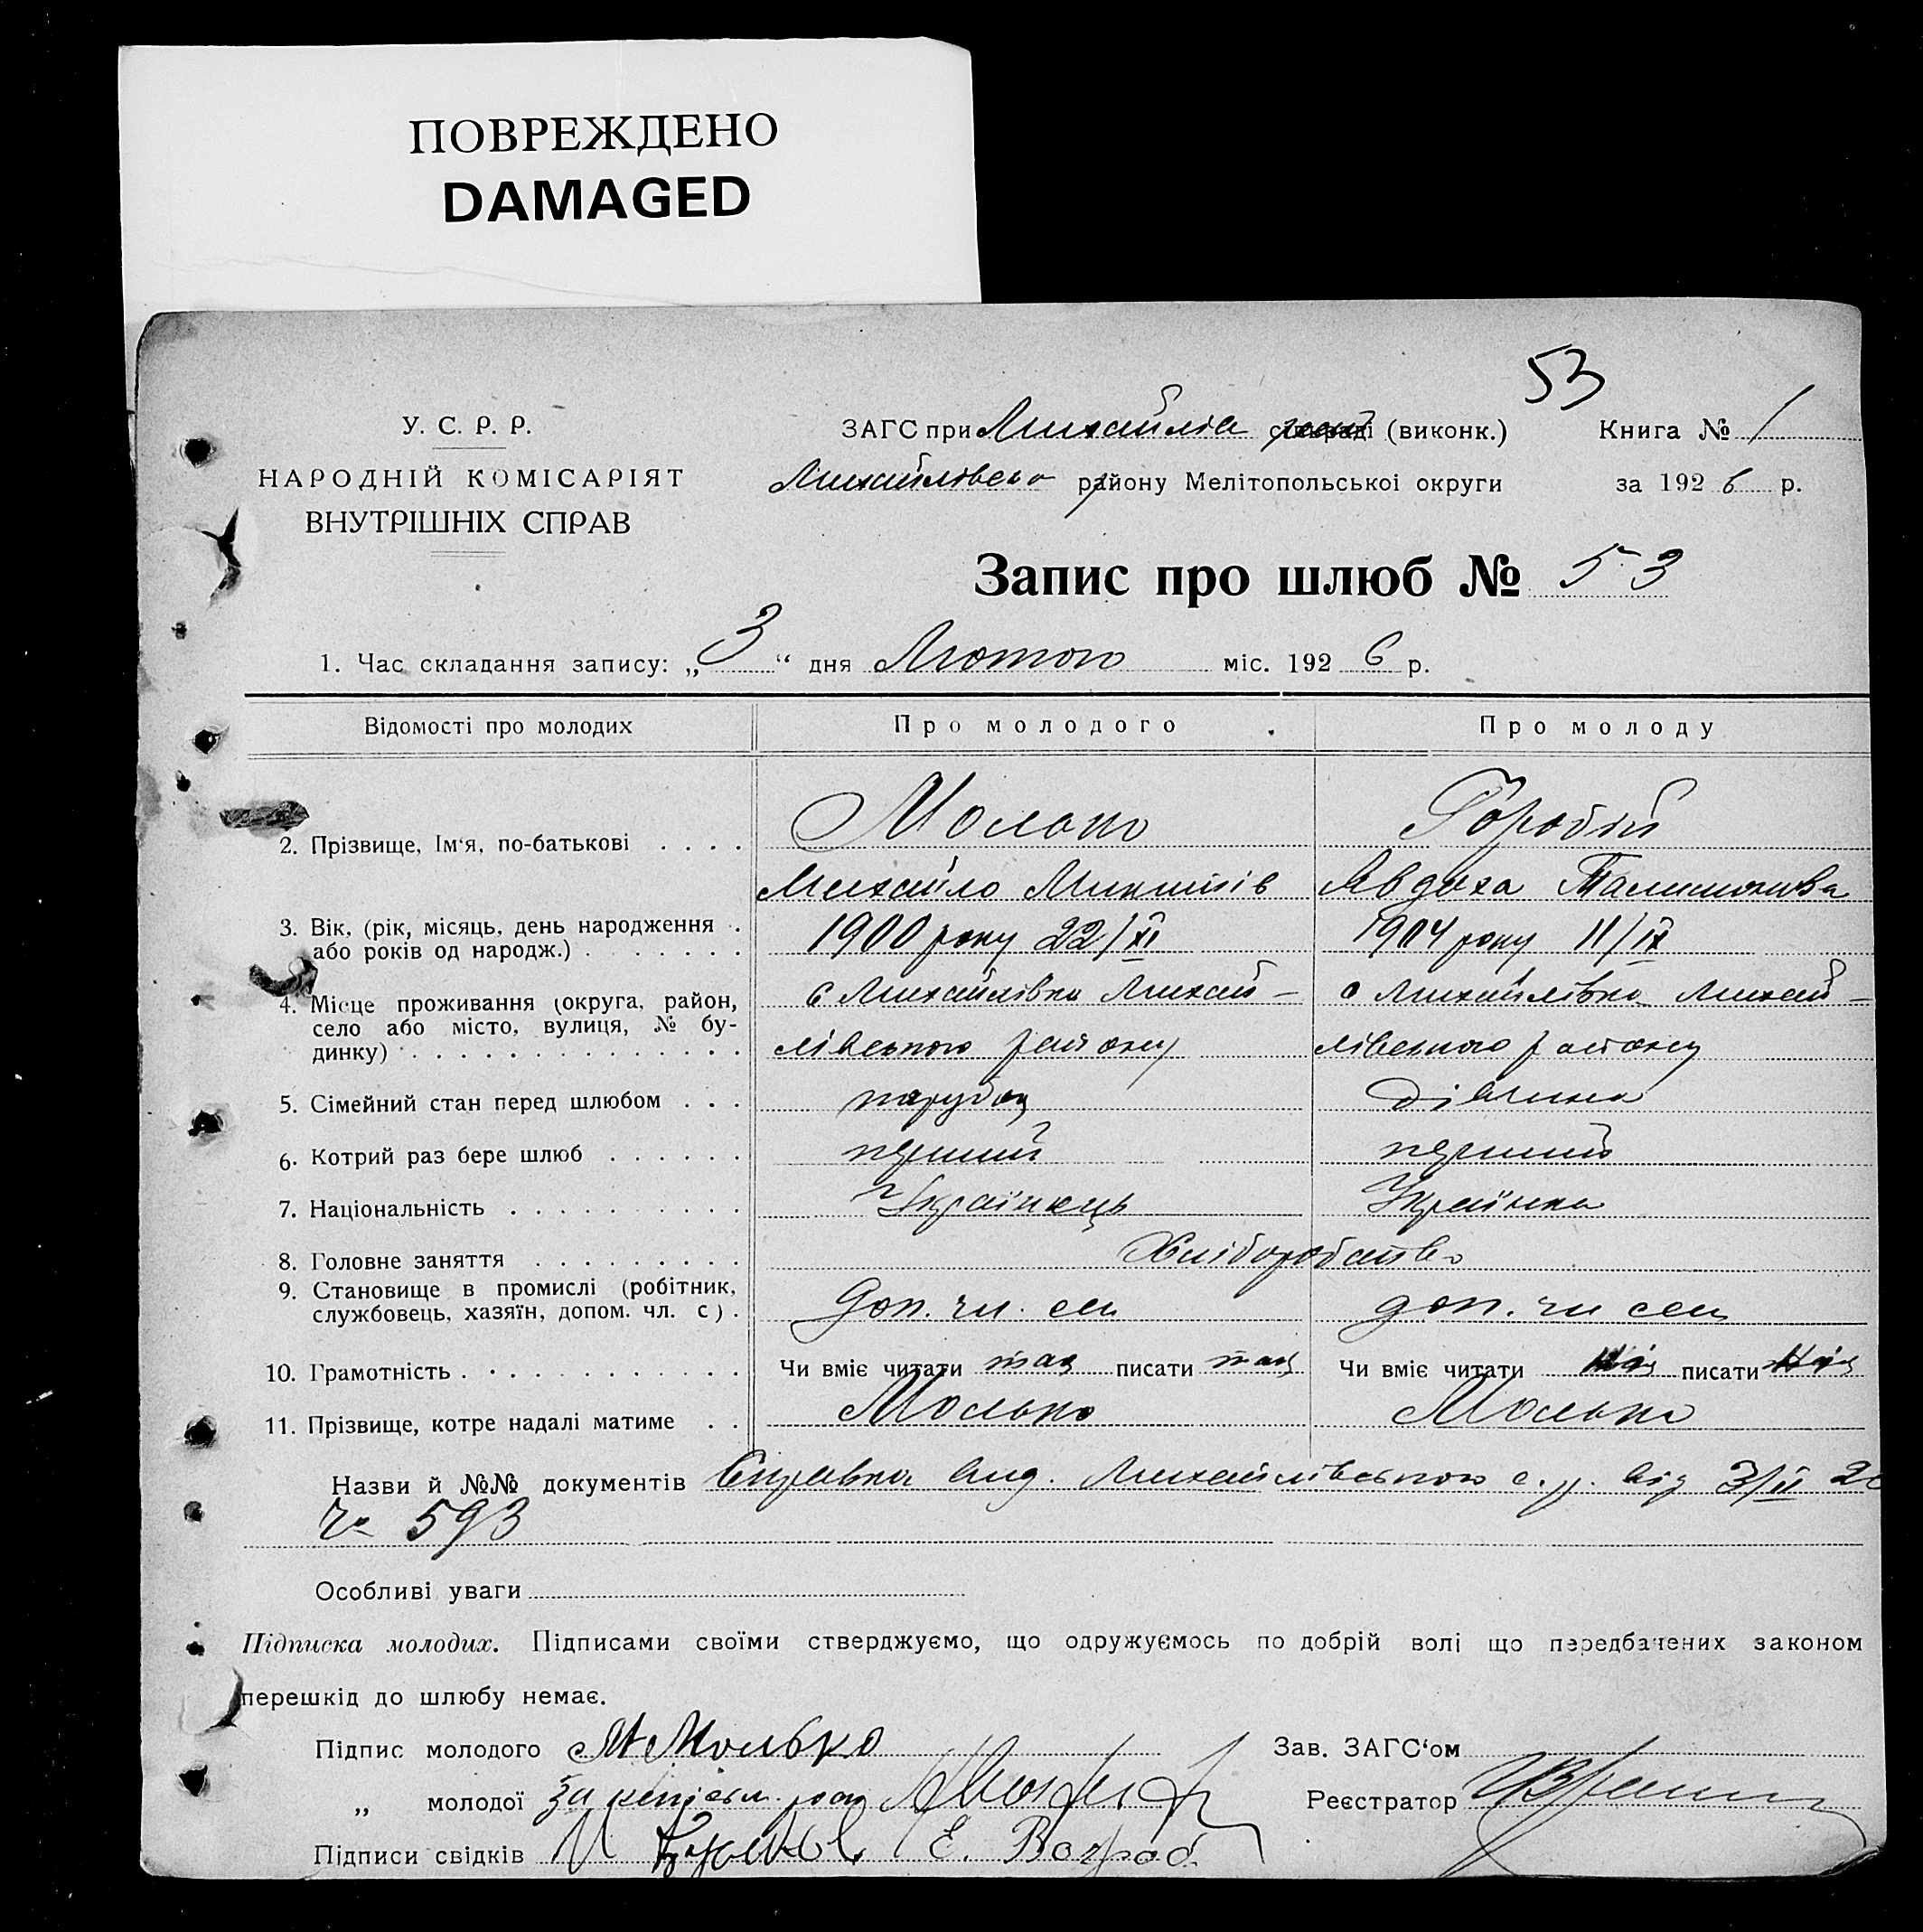 ПОВРЕЖДЕНО
DAMAGED
53
У. С. Р. Р.
НАРОДНІЙ КОМІСАРІЯТ
ВНУТРІШНІХ СПРАВ
ЗАГС при Михайлів (виконк.)
Книга № 1
Михайлівсько району Мелітопольської округи
за 1926 р.
Запис про шлюб № 53
1. Час складання запису: „3“ дня Лютого міс. 1926 р.
Відомості про молодих
Про молодого
Про молоду
2. Прізвище, Ім‘я, по-батькові . . . .
Молько
Горобій
Михайло
Авдоха
3. Вік, (рік, місяць, день народження .
або років од народж.) . . . . . . .
1900 року 22/XI
1904 року 11/IX
4. Місце проживання (округа, район,
село або місто, вулиця, № бу-
динку) . . . . . . . . . . . . . .
с Михайлівка Михай-
лівського району
с Михайлівка Михай-
лівського району
5. Сімейний стан перед шлюбом . . .
парубок
дівчина
6. Котрий раз бере шлюб . . . . . .
перший
перший
7. Національність . . . . . . . . . .
Українець
Українка
8. Головне заняття . . . . . . . . .
Хліборобство
9. Становище в промислі (робітник,
службовець, хазяїн, допом. чл. с) .
доп. чл. сем
доп. чл сем
10. Грамотність . . . . . . . . . . . .
Чи вміє читати так писати так
Чи вміє читати ні писати ні
11. Прізвище, котре надалі матиме . .
Молько
Молько
Назви й №№ документів Справка вид. Михайлівською с. р. від 3/II 26
Ч 593
Особливі уваги
Підписка молодих. Підписами своїми стверджуємо, що одружуємось по добрій волі що передбачених законом
перешкід до шлюбу немає.
Підпис молодого М Молько
Зав. ЗАГС‘ом
„ молодої за неписьм.
Реєстратор
Підписи свідків Е.